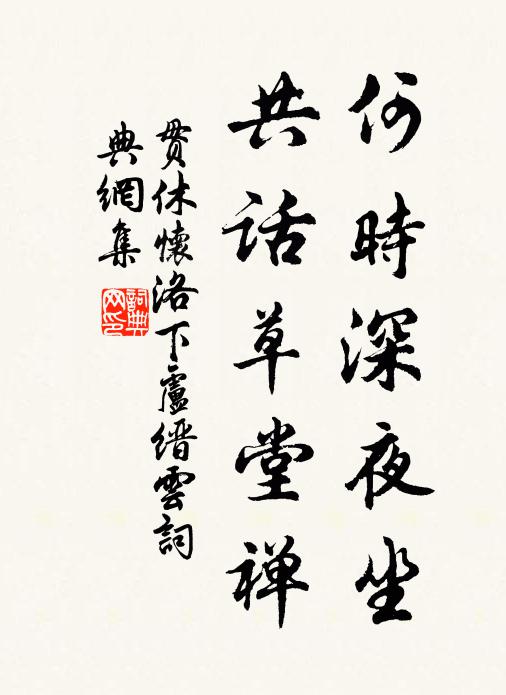 何時深夜坐
共话草堂禅
貫休懷洛下盧缙雲詞
典網集
詞典网印